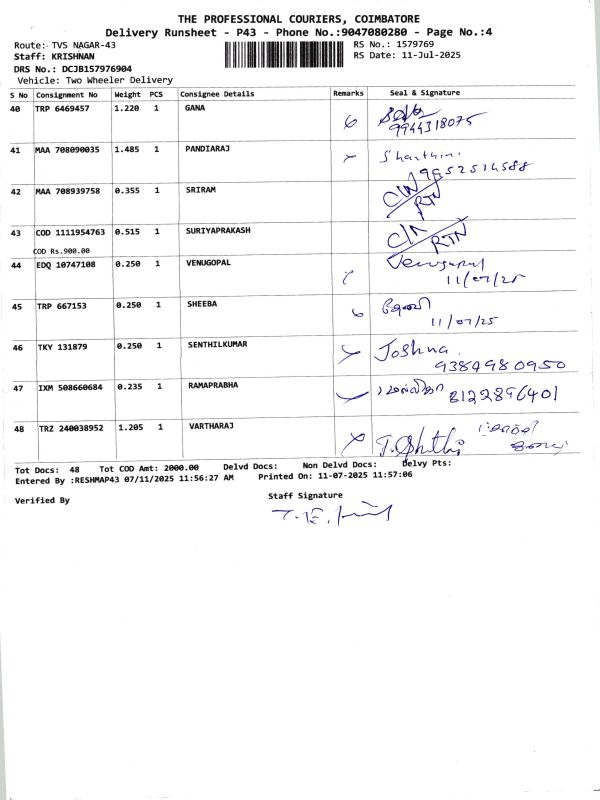 THE PROFESSIONAL COURIERS, COIMBATORE
Delivery Runsheet - P43 - Phone No.:9047080280 - Page No.:4
Route: TVS NAGAR-43
RS No.: 1579769
Staff: KRISHNAN
RS Date: 11-Jul-2025
DRS No.: DCJB157976904
Vehicle: Two Wheeler Delivery
S No Consignment No Weight PCS Consignee Details Remarks Seal & Signature
40 TRP 6469457 1.220 1 GANA
9944318075
41 MAA 708090035 1.485 1 PANDIARAJ Shanthini
9952514588
42 MAA 708939758 0.355 1 SRIRAM C/N
RTN
43 COD 1111954763 0.515 1 SURIYAPRAKASH C/N
RTN
COD Rs.900.00
44 EDQ 10747108 0.250 1 VENUGOPAL Venugopal
11/07/25
45 TRP 667153 0.250 1 SHEEBA
11/07/25
46 TKY 131879 0.250 1 SENTHILKUMAR Joshna
9384980950
47 IXM 508660684 0.235 1 RAMAPRABHA 8122896401
48 TRZ 240038952 1.205 1 VARTHARAJ
Tot Docs: 48 Tot COD Amt: 2000.00 Delvd Docs: Non Delvd Docs: Delvy Pts:
Entered By :RESHMAP43 07/11/2025 11:56:27 AM Printed On: 11-07-2025 11:57:06
Verified By
Staff Signature